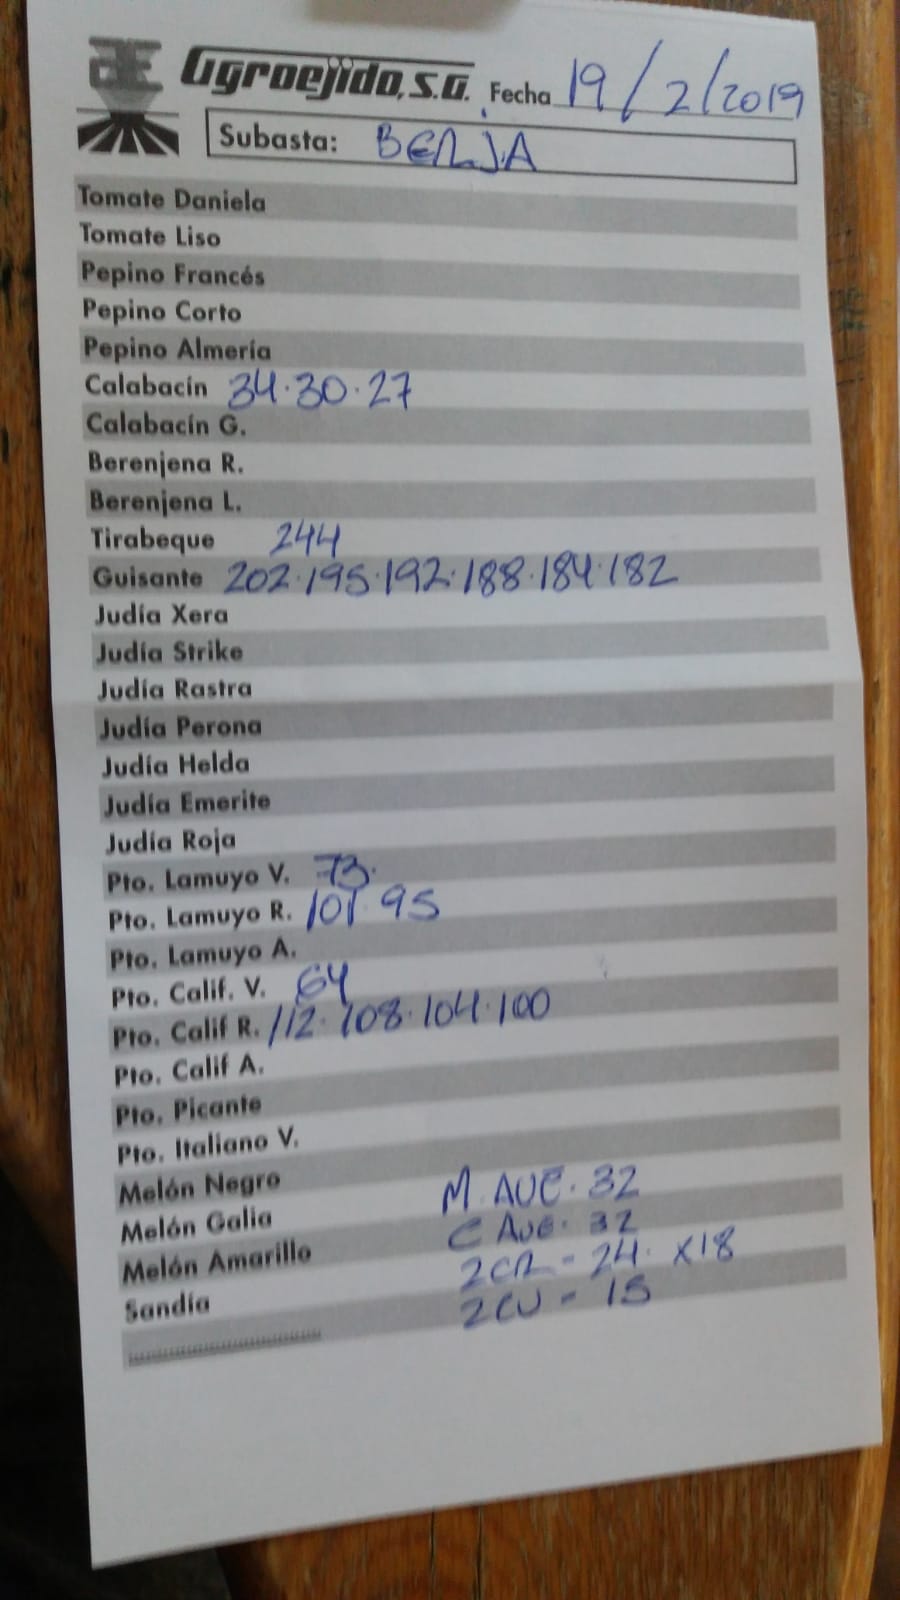 Agroejido, S.A. Fecha 19/2/2019
Subasta: BERJA
Tomate Daniela
Tomate Liso
Pepino Francés
Pepino Corto
Pepino Almería
Calabacín 34.30.27
Calabacín G.
Berenjena R.
Berenjena L.
Tirabeque 244
Guisante 202.195.192.188.184.182
Judía Xera
Judía Strike
Judía Rastra
Judía Perona
Judía Helda
Judía Emerite
Judía Roja
Pto. Lamuyo V. 73.
Pto. Lamuyo R. 101.95
Pto. Lamuyo A.
Pto. Calif. V. 64
Pto. Calif R. 112.108.104.100
Pto. Calif A.
Pto. Picante
Pto. Italiano V.
Melón Negro M. AUE. 32
Melón Galia C AUE. 32
Melón Amarillo 2CR - 24. X18
Sandía 2CU - 15